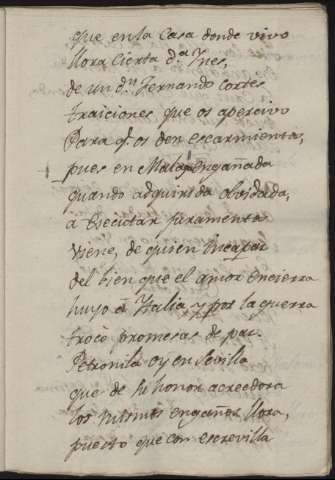 que en la Casa donde vivo
llora Cierta d.ª Ynes,
de un d.n Fernando Cortes
traiciones que os apercivo
Para q.e os den escarmientos,
pues en Malaga engañada
quando adquirida olvidada,
a executar juramentos
viene, de quien incapaz
del bien que el amor encierra
huyo á Italia, y por la guerra
trocó promesas de paz.
Petronila oy en Sevilla
que de su honor acreedora
los mismos engaños llora,
puesto que con escrevilla